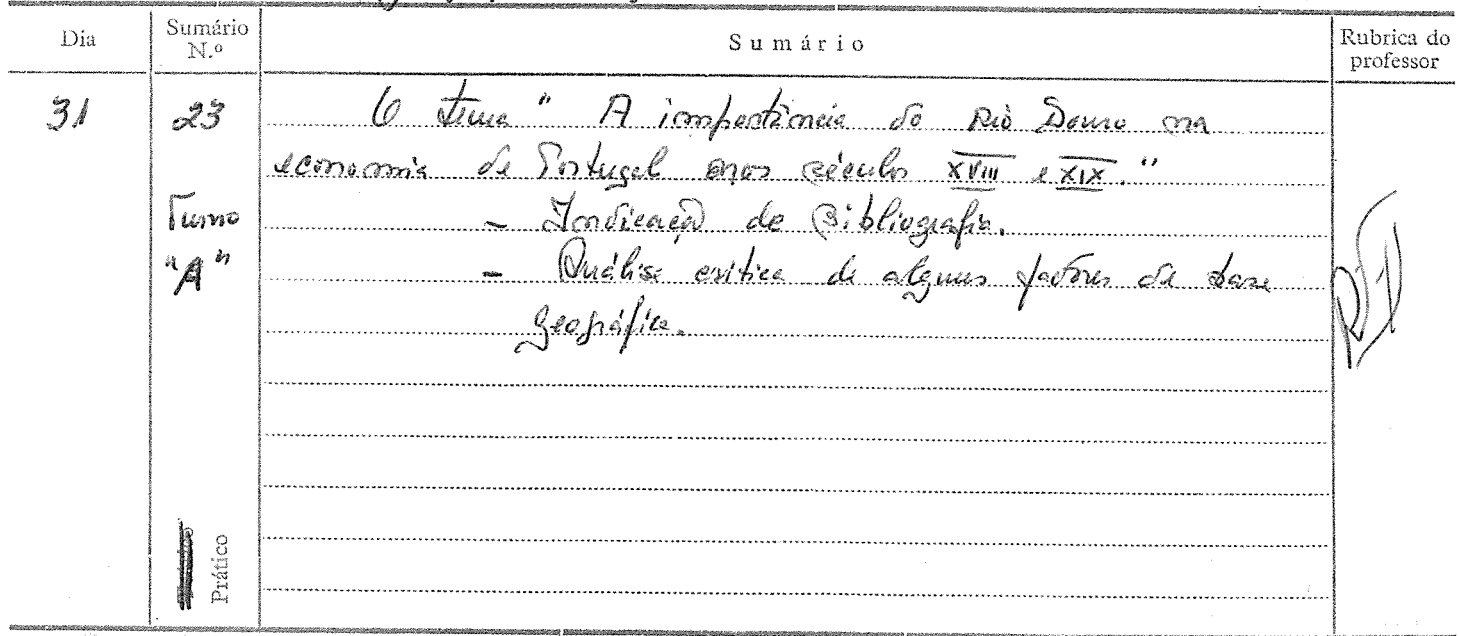 Dia
Sumário
N.º
Sumário
Rubrica do
professor
31
23
O tema " A importância do Rio Douro na
economia de Portugal nos séculos XVIII e XIX."
Turno
"A"
- Indicação de Bibliografia.
- Análise crítica de alguns factores de base
geográfica.
Prático